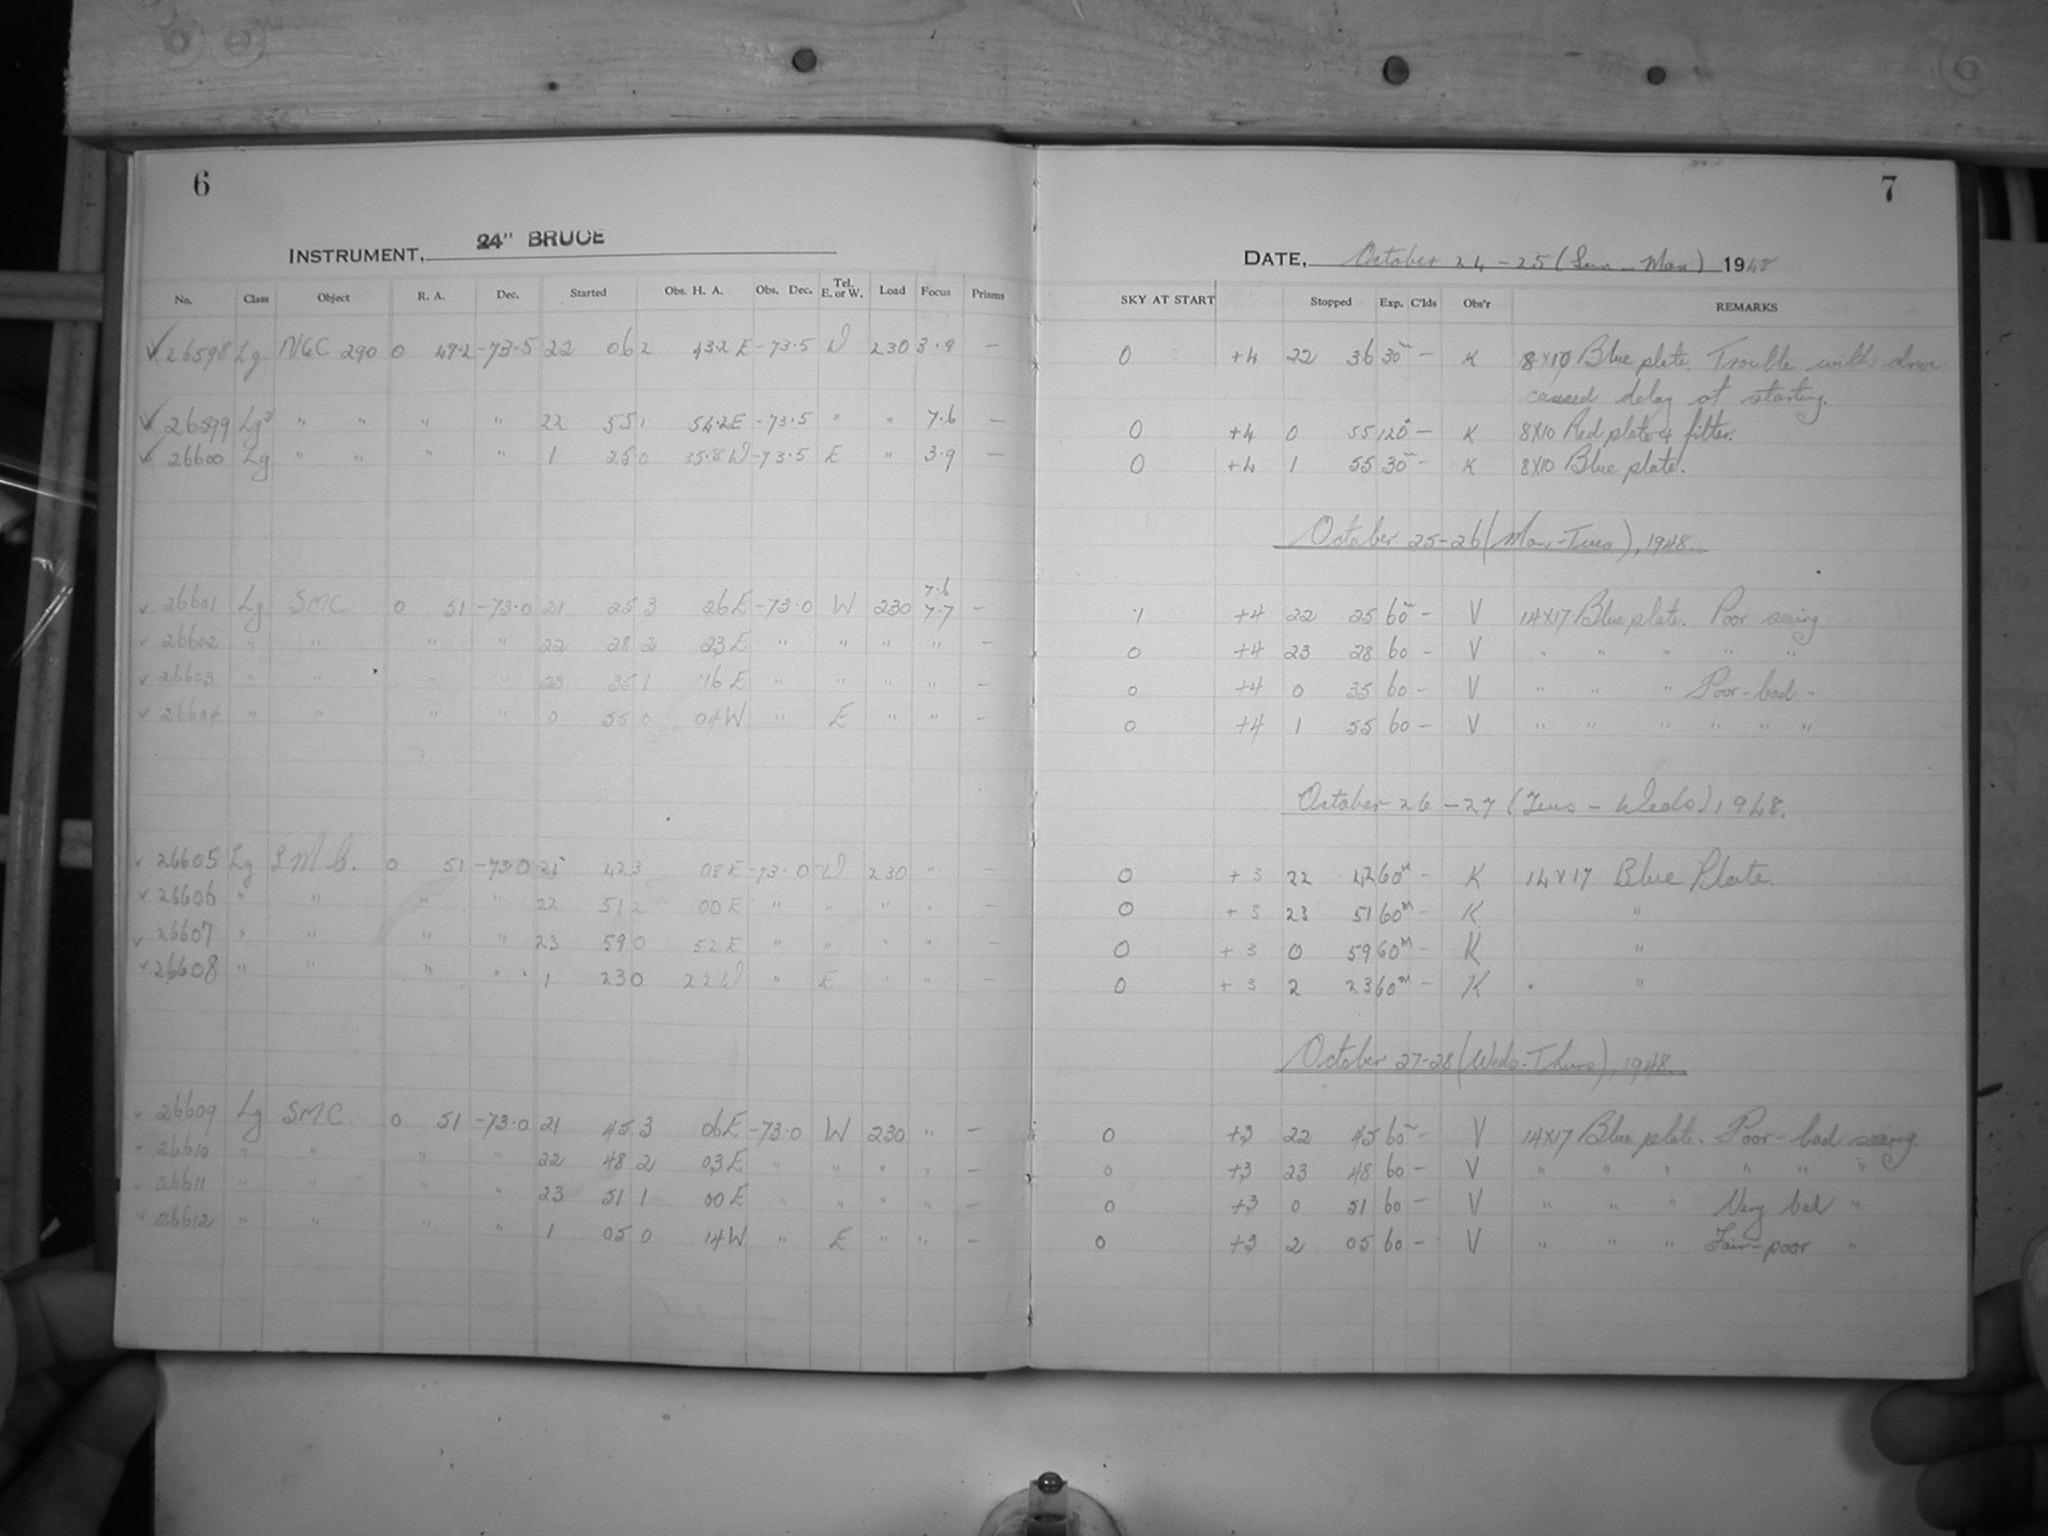 6
INSTRUMENT, 24" BRUCE
No. Class Object R. A. Dec. Started Obs. H. A. Obs. Dec. Tel. E. or W. Load Focus Prisms
✓ 26598 Lg NGC 290 0 49.2 -73.5 22 06 2 43.2 E -73.5 W 230 3.9 —
✓ 26599 Lg " " " " 22 55 1 54.2 E -73.5 " " 7.6 —
✓ 26600 Lg " " " " 1 25 0 35.8 W -73.5 E " 3.9 —
7.6
✓ 26601 Lg SMC 0 51 -73.0 21 25 3 26 E -73.0 W 230 7.7 —
✓ 26602 " " " " 22 28 2 23 E " " " " —
✓ 26603 " " " " 23 35 1 16 E " " " " —
✓ 26604 " " " " 0 55 0 04 W " E " " —
✓ 26605 Lg S M C. 0 51 -73.0 21 42 3 08 E -73.0 W 230 " —
✓ 26606 " " " " 22 51 2 00 E " " " " —
✓ 26607 " " " " 23 59 0 52 E " " " " —
✓ 26608 " " " " 1 23 0 22 W " E " " —
✓ 26609 Lg SMC. 0 51 -73.0 21 45 3 06 E -73.0 W 230 " —
26610 " " " " 22 48 2 03 E " " " " —
26611 " " " " 23 51 1 00 E " " " " —
26612 " " " " 1 05 0 14 W " E " " —
7
DATE, October 24-25 (Sun - Mon) 1948
SKY AT START Stopped Exp. C'lds Obs'r REMARKS
0 +4 22 36 30m — K 8x10 Blue plate. Trouble with drive
caused delay at starting.
0 +4 0 55 120 — K 8x10 Red plate & filter.
0 +4 1 55 30m — K 8x10 Blue plate.
October 25-26 (Mon-Tues), 1948.
1 +4 22 25 60m — V 14x17 Blue plate. Poor seeing
0 +4 23 28 60 — V " " " " "
0 +4 0 35 60 — V " " " Poor-bad "
0 +4 1 55 60 — V " " " " " "
October 26-27 (Tues - Weds) 1948.
0 +3 22 42 60m — K 14x17 Blue Plate.
0 +3 23 51 60m — K "
0 +3 0 59 60m — K "
0 +3 2 23 60m — K " "
October 27-28 (Weds-Thurs), 1948.
0 +3 22 45 60m — V 14x17 Blue plate. Poor-bad seeing
0 +3 23 48 60 — V " " " " " "
0 +3 0 51 60 — V " " " Very bad "
0 +3 2 05 60 — V " " " Fair-poor "